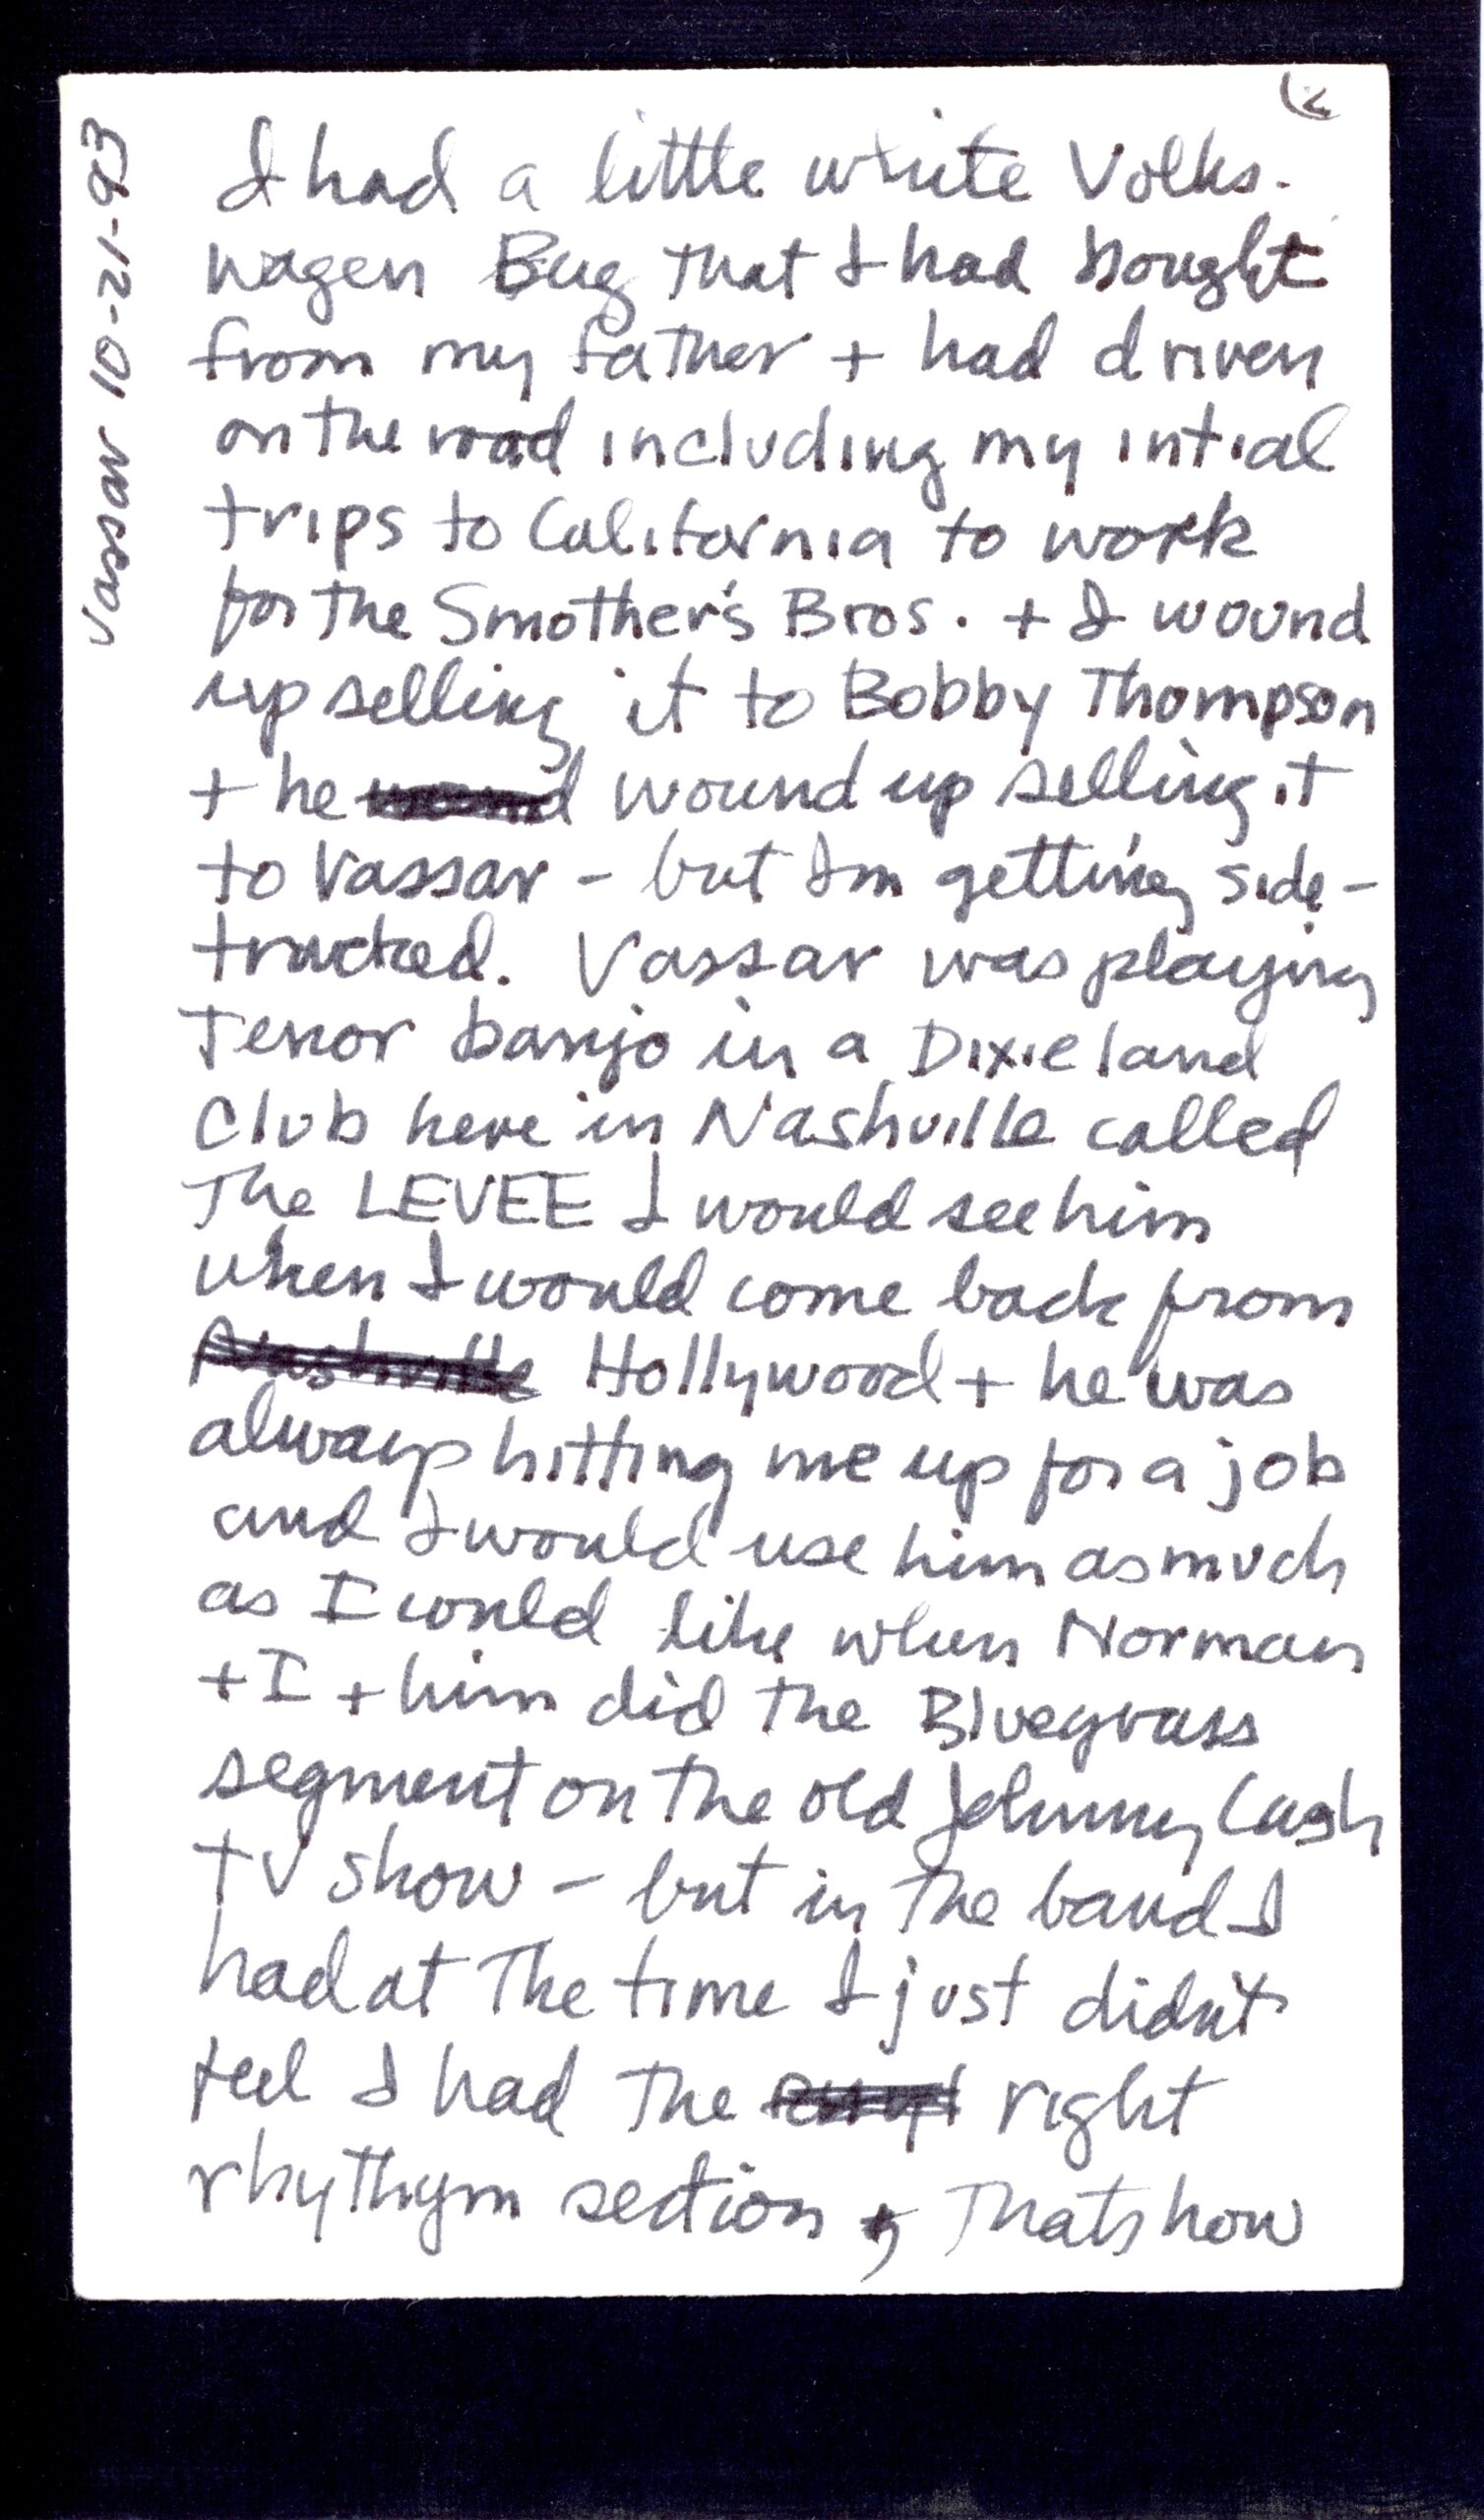 (2
Vassar 10-21-93
I had a little white Volks-
wagen Bug that I had bought
from my father + had driven
on the road including my intial
trips to California to work
for the Smother's Bros. + I wound
up selling it to Bobby Thompson
+ he wound wound up selling it
to Vassar - but Im getting side-
tracked. Vassar was playing
Tenor banjo in a Dixieland
Club here in Nashville called
The LEVEE I would see him
when I would come back from
Nashville Hollywood + he was
always hitting me up for a job
and I would use him as much
as I could like when Norman
+ I + him did the Bluegrass
segment on the old Johnny Cash
TV show - but in the band I
had at the time I just didn't
feel I had the right
rhythym section, Thats how